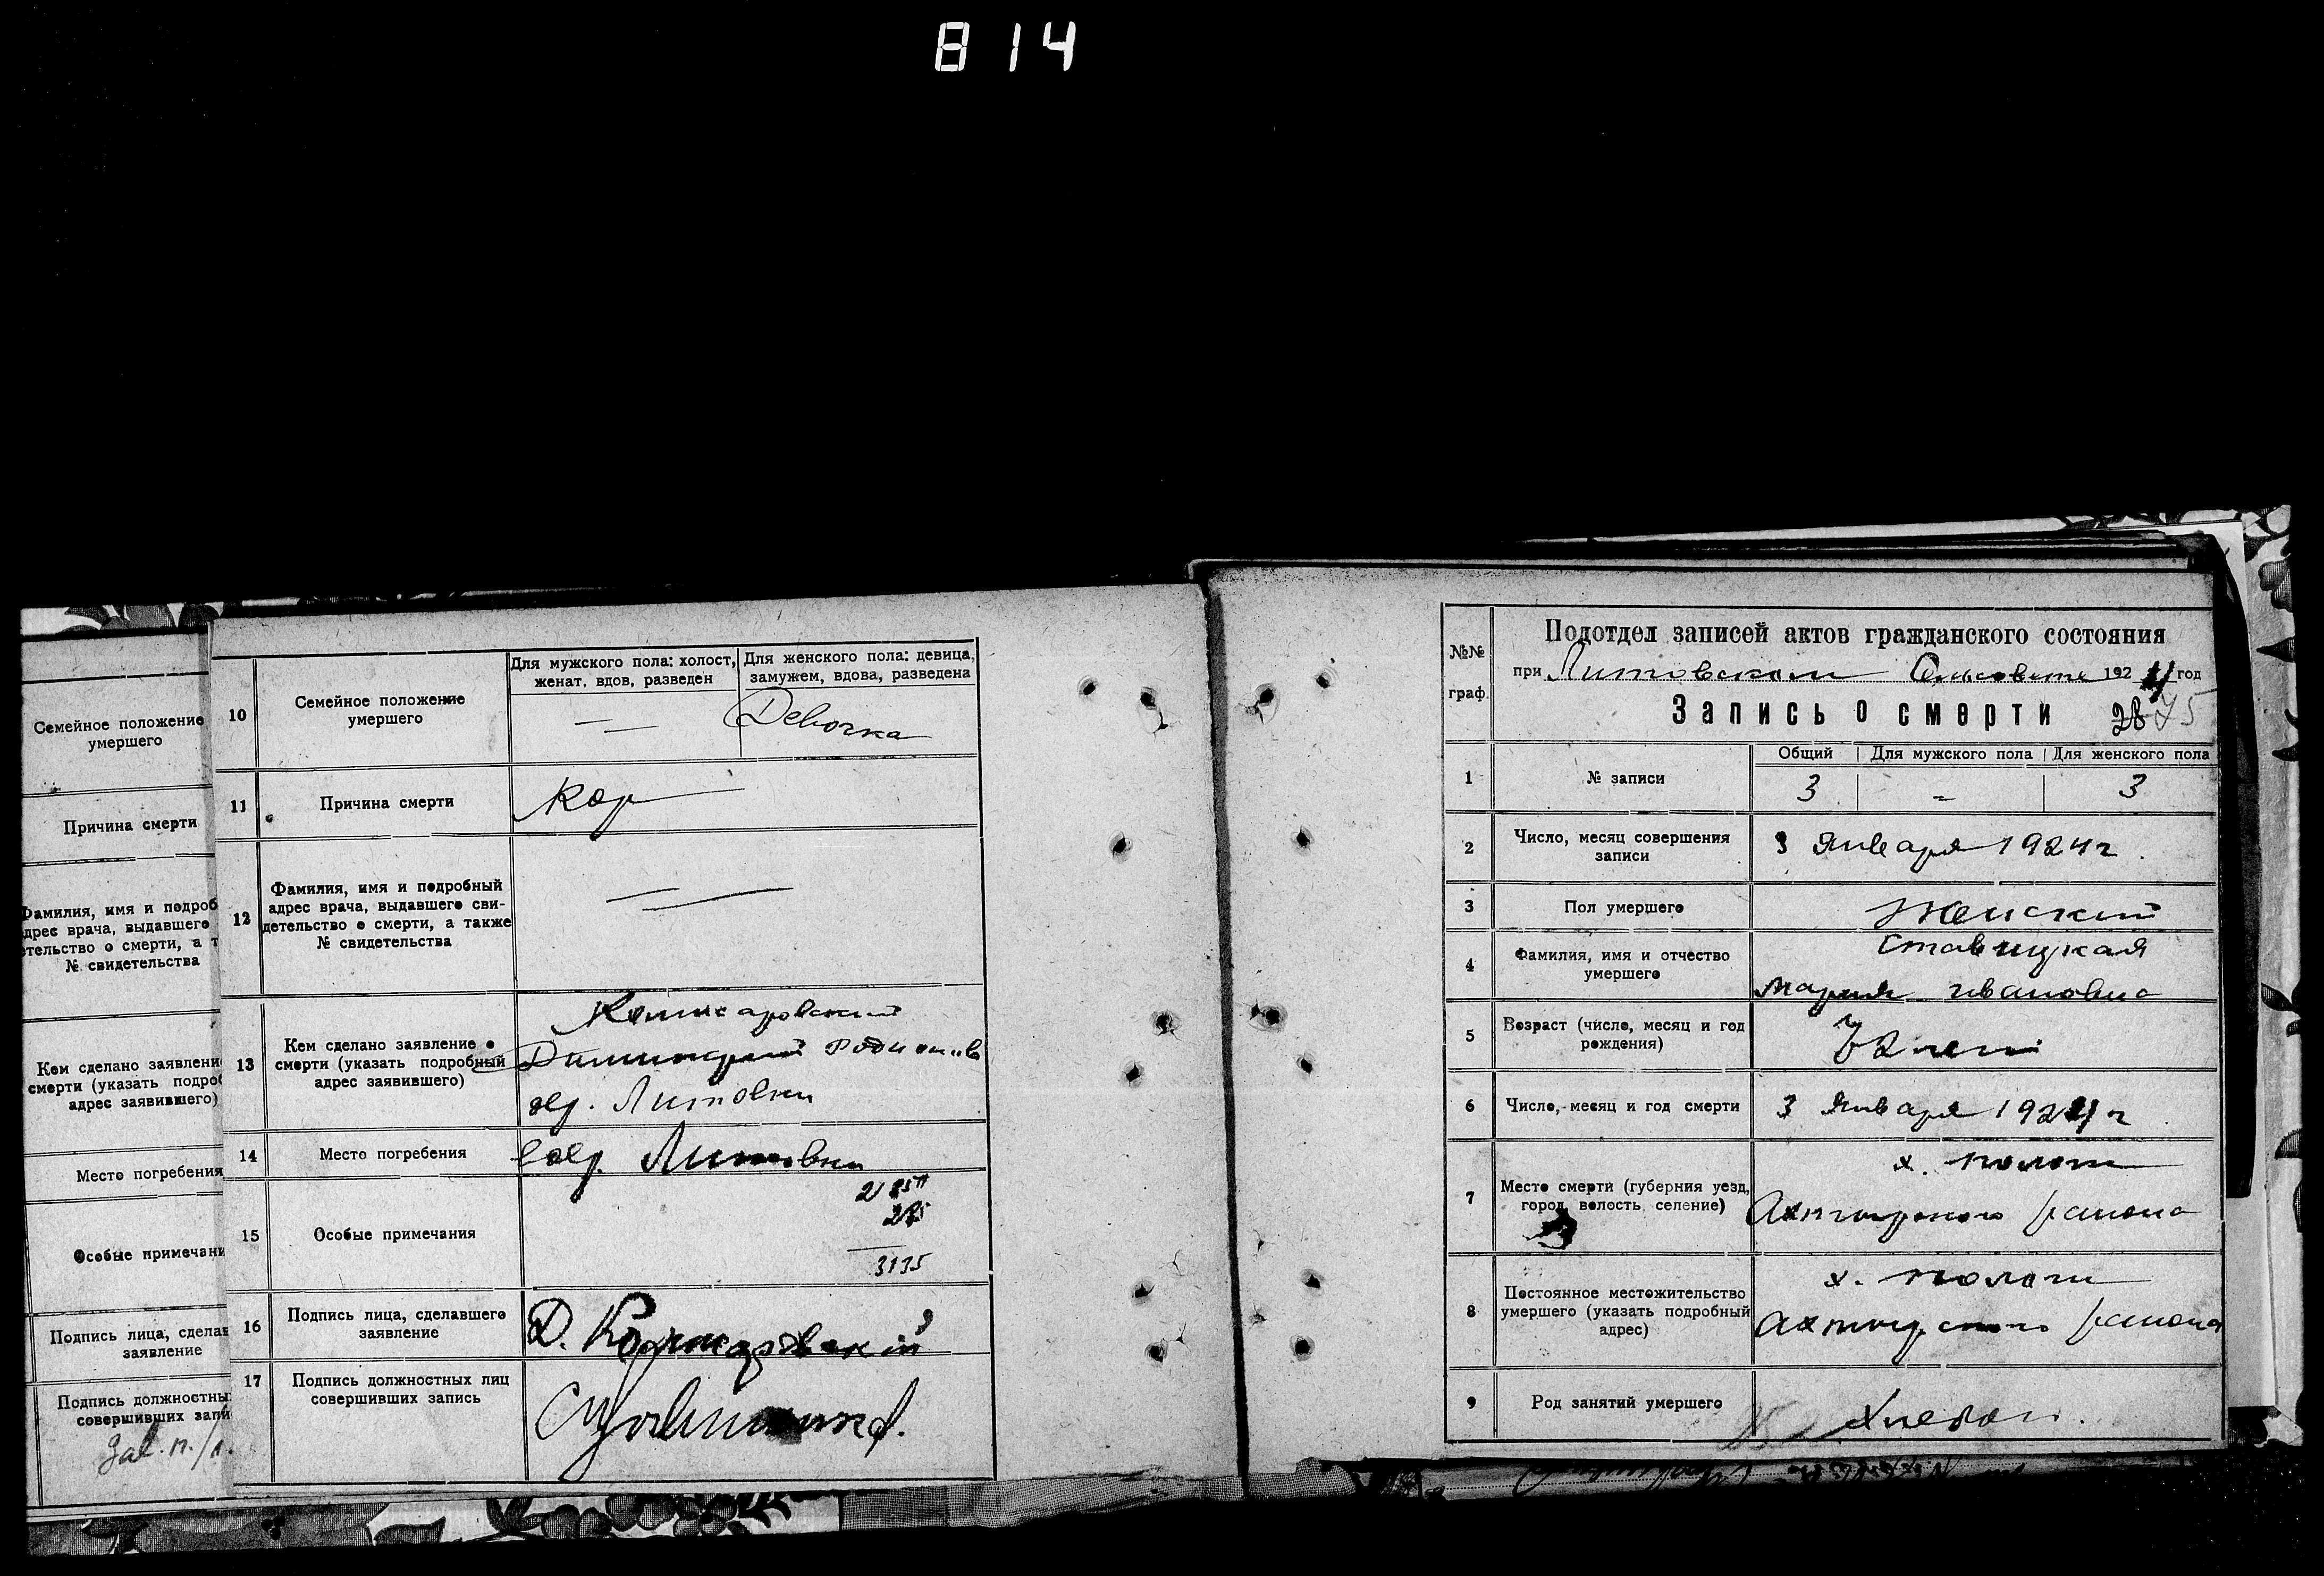 814
Семейное положение
умершего
Причина смерти
Фамилия, имя и подроб
адрес врача, выдавшего
етельство о смерти, а т
№ свидетельства
Кем сделано заявлени
смерти (указать подро
адрес заявившего)
Место погребения
Особые примечани
Подпись лица, сдела
заявление
Подпись должностны
совершивших запи
10
Семейное положение
умершего
Для мужского пола: холост,
женат, вдов, разведен
Для женского пола: девица,
замужем, вдова, разведена
—
Девочка
11
Причина смерти
Кор
12
Фамилия, имя и подробный
адрес врача, выдавшего сви-
детельство о смерти, а также
№ свидетельства
13
Кем сделано заявление о
смерти (указать подробный
адрес заявившего)
Комисаровский
Димитрий Родионов
дер. Литовки
14
Место погребения
в дер. Литовки
15
Особые примечания
3135
16
Подпись лица, сделавшего
заявление
Д. Комисаровский
17
Подпись должностных лиц
совершивших запись
№№
граф.
Подотдел записей актов гражданского состояния
при Литовском Сельсовете 1924 год
Запись о смерти 28 75
1
№ записи
Общий
Для мужского пола
Для женского пола
3
-
3
2
Число, месяц совершения
записи
3 Января 1924 г.
3
Пол умершего
Женский
4
Фамилия, имя и отчество
умершего
Ставицкая
Мария Ивановна
5
Возраст (число, месяц и год
рождения)
лет
6
Число, месяц и год смерти
3 Января 1924 г
7
Место смерти (губерния уезд,
город, волость, селение)
х.
Ахтырского района
8
Постоянное местожительство
умершего (указать подробный
адрес)
х.
Ахтырского района
9
Род занятий умершего
Хлебоп.